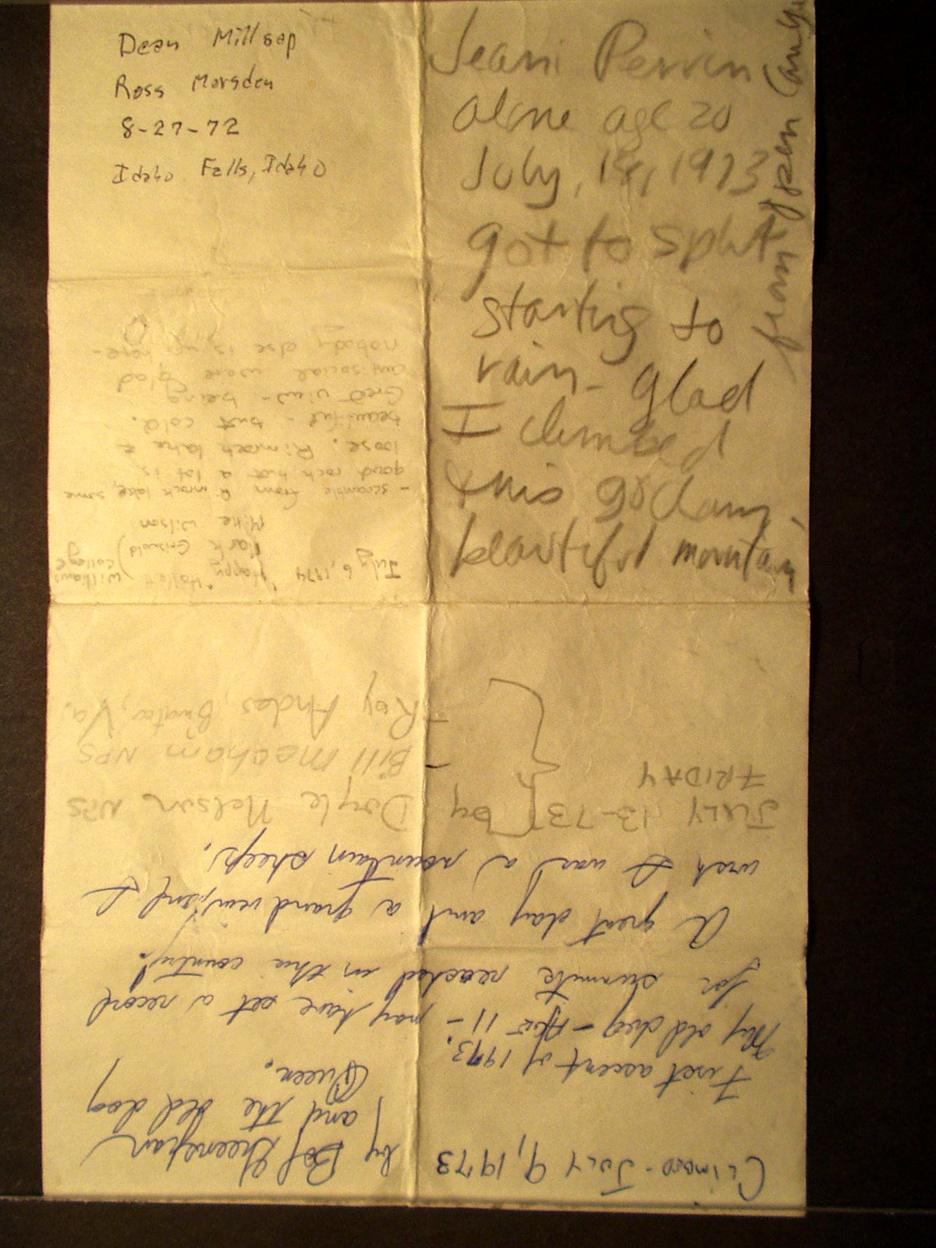 Dean Millsap
Ross Marsden
8-27-72
Idaho Falls, Idaho
Jeani Perrin
alone age 20
July, 18, 1973
got to split
starting to
rain - glad
I climbed
this godamn
beautiful mountain
from open
July 6, 1974 "Happy" Halley
Mark Griswold ) Williams College
Mike Wilson
- scramble from R mrock lake, some
good rock but a lot is
loose. Rimrock lake is
beautiful - but cold.
Great view - being
antisocial were glad
nobody else is up here -
Climbed - July 9, 1973 by Bob Greenspan
and the old dog
Queen.
First ascent of 1973.
My old dog - After 11 - may have set a record
for summits reached in this country!
A great day and a grand view, isn't it
wish I was a mountain sheep.
JULY 13-73 by Doyle Nelson NPS
FRIDAY
Bill Mecham NPS
+ Roy Andes, Va.